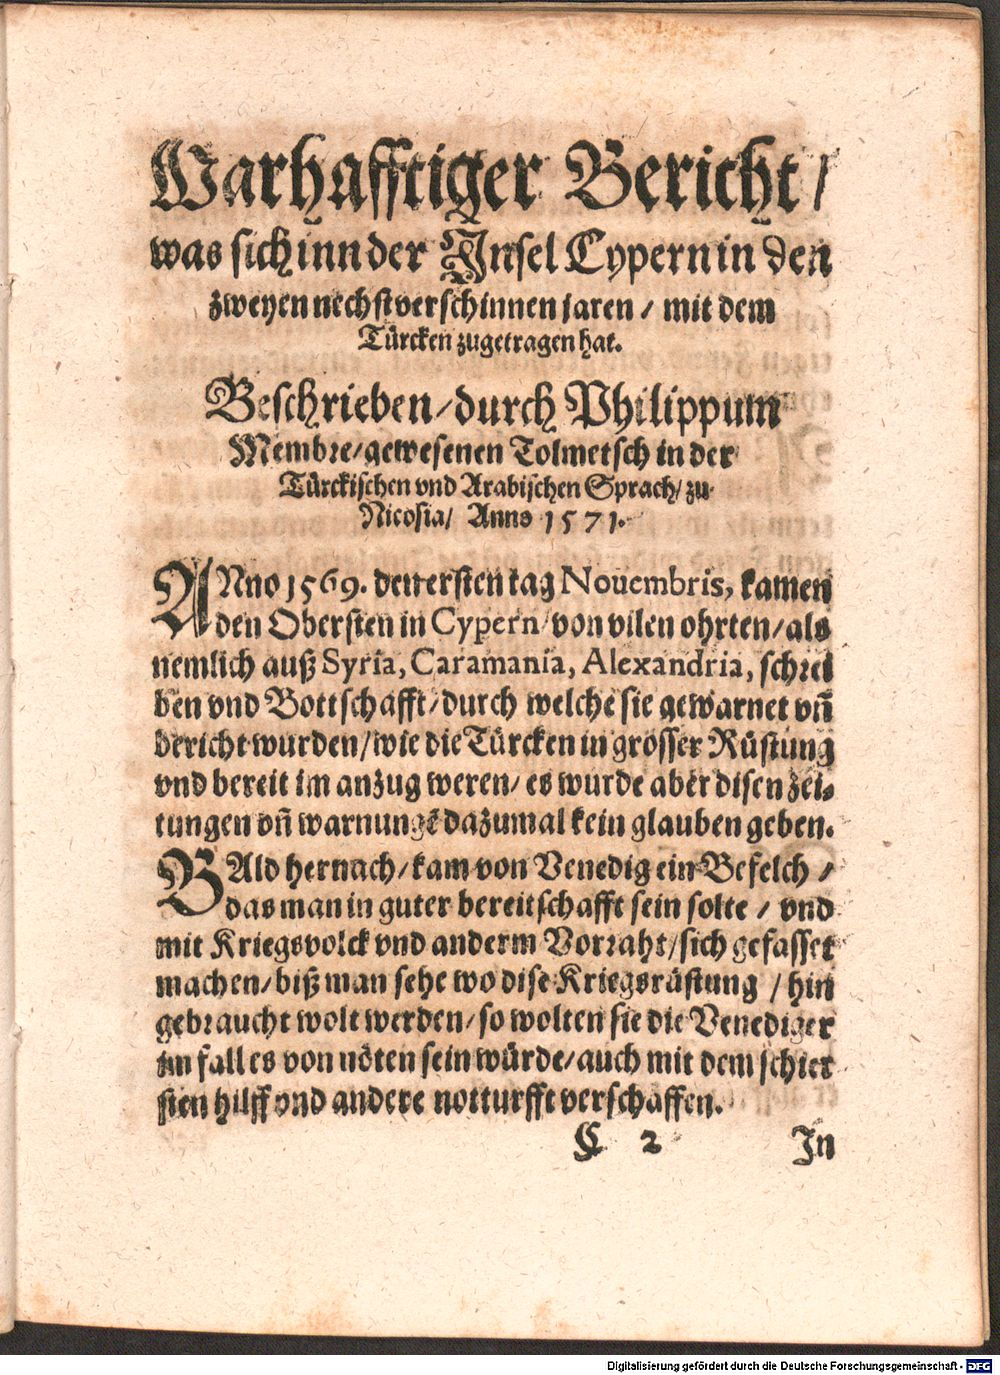 Warhafftiger Bericht /
was sich inn der Insel Cypern in den
zweyen nechstverschinnen jaren / mit dem
Türcken zugetragen hat.
Beschrieben / durch Philippum
Membre / gewesenen Tolmetsch in der
Türckischen vnd Arabischen Sprach / zu
Nicosia / Anno 1571.
ANno 1569. den ersten tag Nouembris, kamen
den Obersten in Cypern / von vilen ohrten / als
nemlich auß Syria, Caramania, Alexandria, schrei
ben vnd Bottschafft / durch welche sie gewarnet vñ
bericht wurden / wie die Türcken in grosser Rüstung
vnd bereit im anzug weren / es wurde aber disen zei-
tungen vñ warnungē dazumal kein glauben geben.
BAld hernach / kam von Venedig ein Befelch /
das man in guter bereitschafft sein solte / vnd
mit Kriegsvolck vnd anderm Vorraht / sich gefasset
machen / biß man sehe wo dise Kriegsrüstung / hin
gebraucht wolt werden / so wolten sie die Venediger
im fall es von nöten sein würde / auch mit dem schier
sten hilff vnd andere notturfft verschaffen.
C 2 In
Digitalisierung gefördert durch die Deutsche Forschungsgemeinschaft - DFG